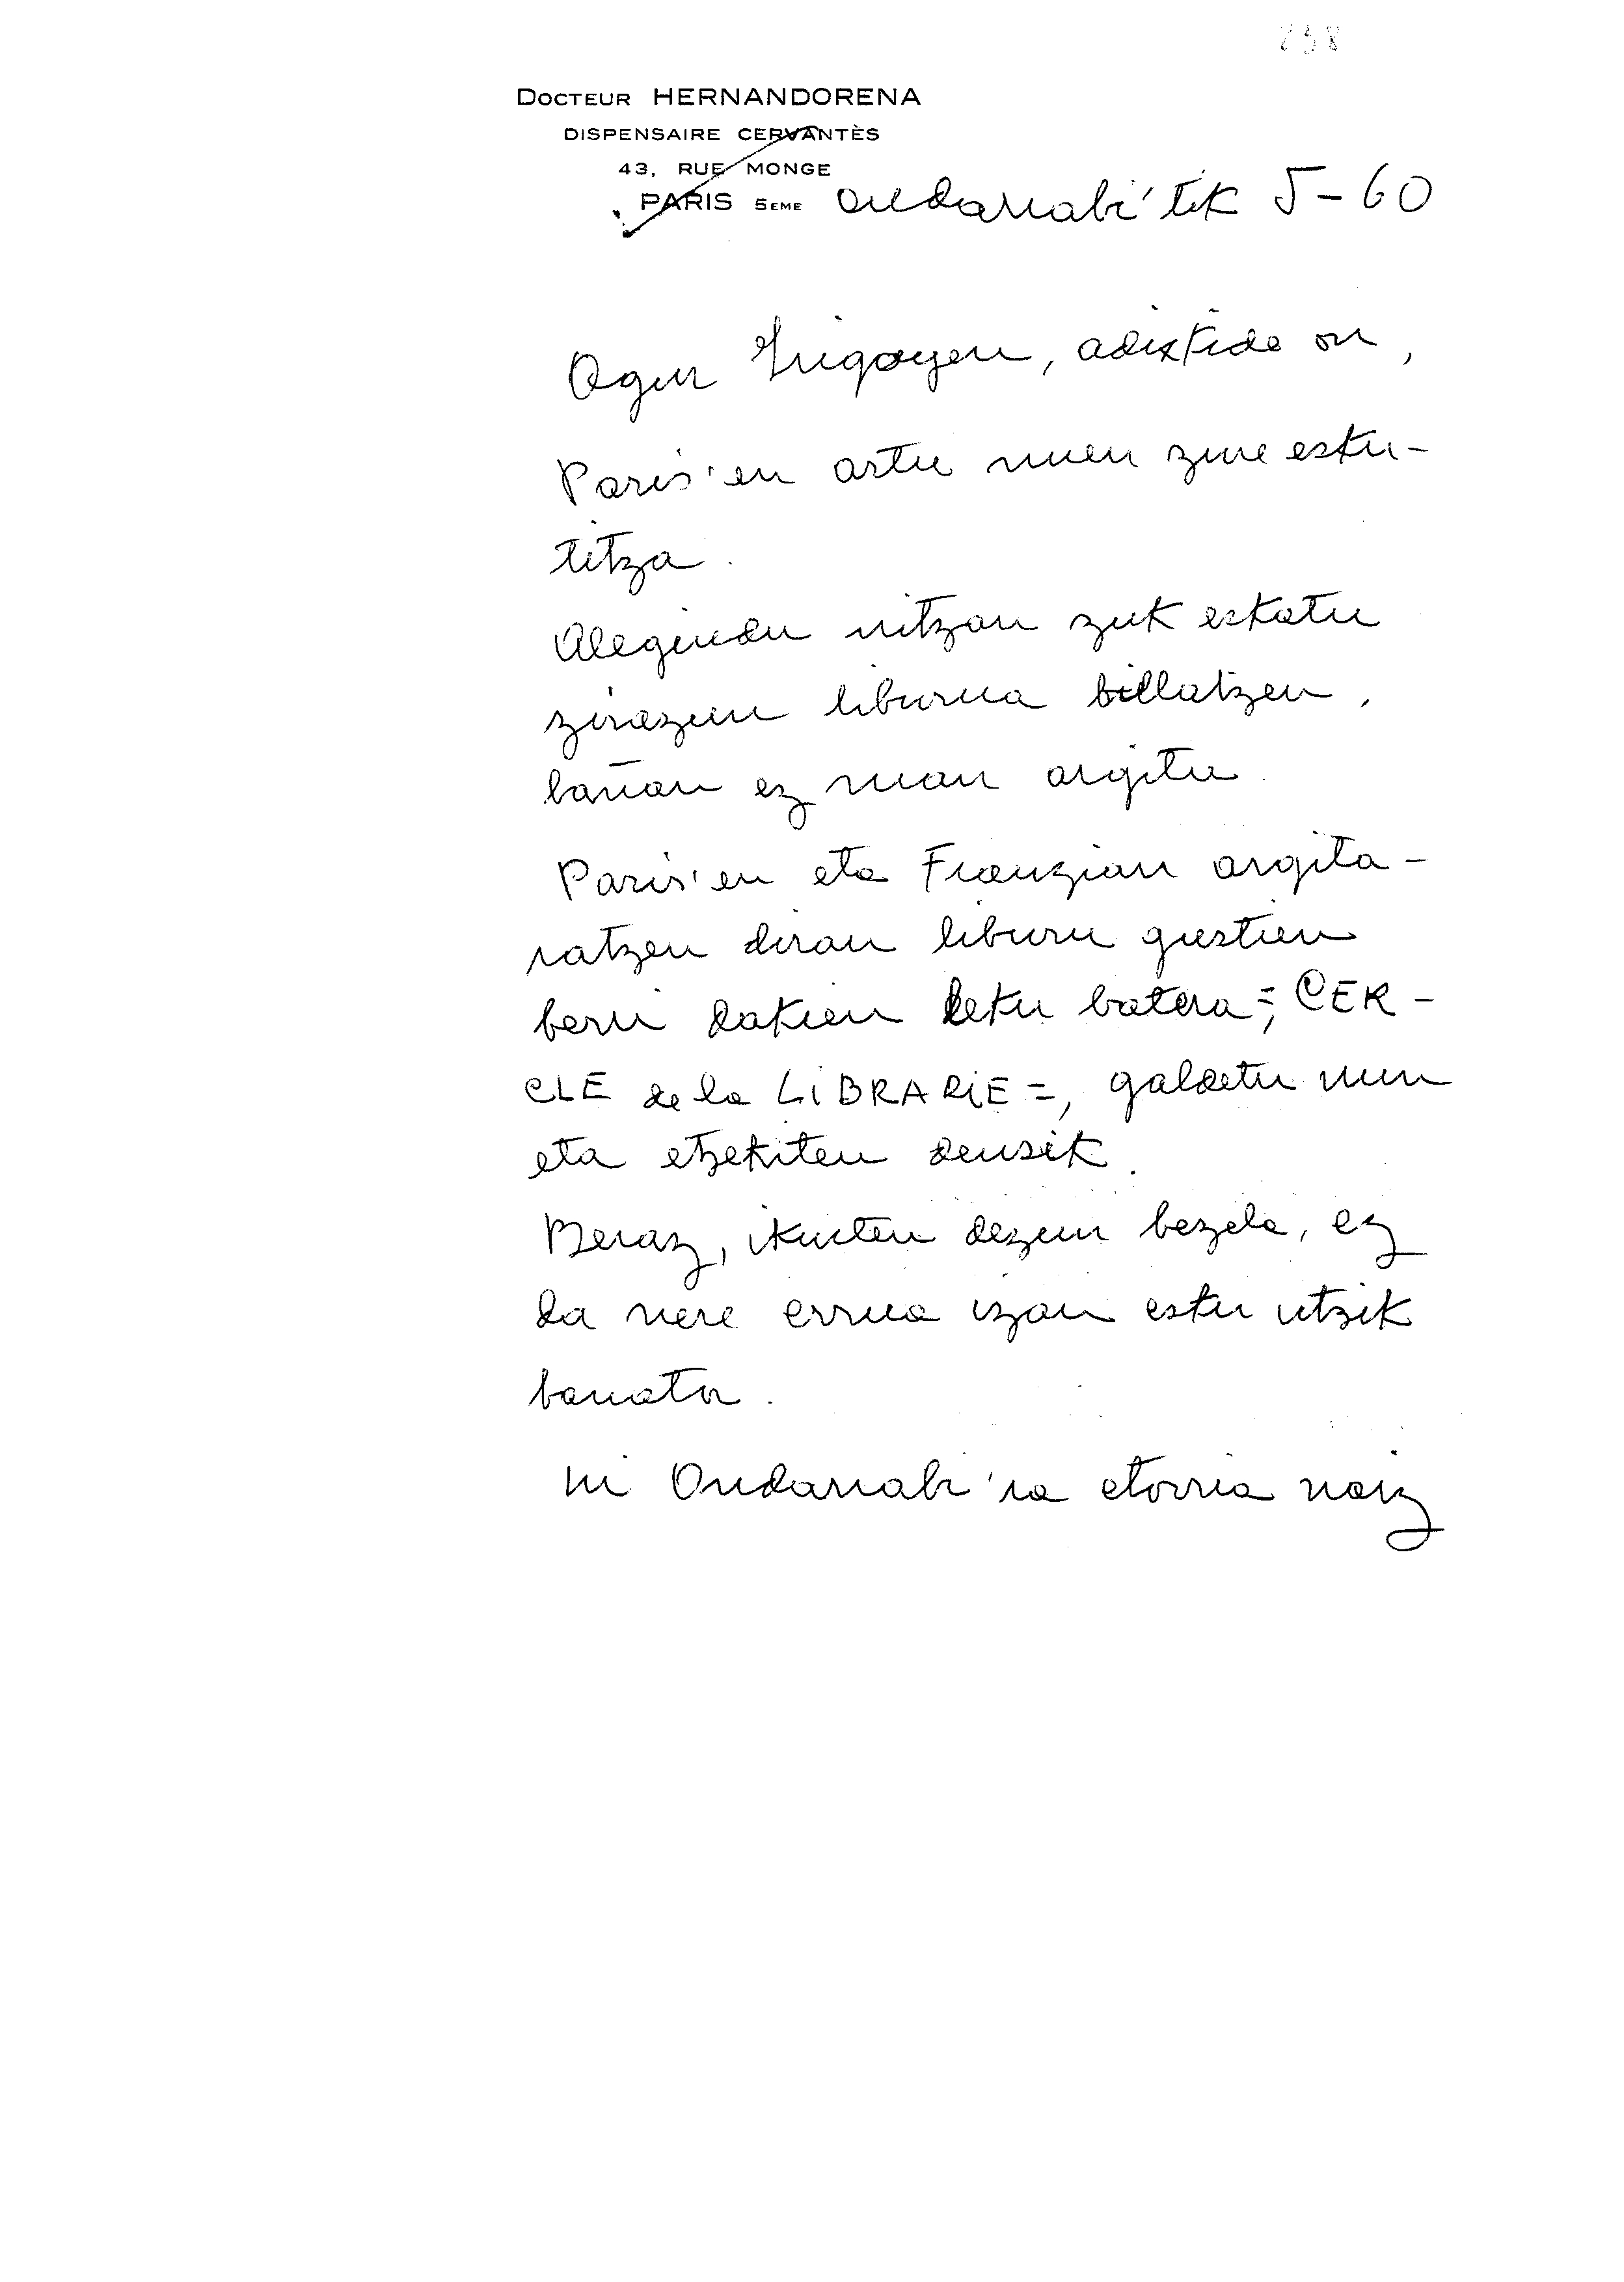 238
DOCTEUR HERNANDORENA
DISPENSAIRE CERVANTÈS
43, RUE MONGE
PARIS 5EME Ondarrabi'tik 5-60
Agur Irigoyen, adixkide on,
Paris'en artu nuen zure esku-
titza.
Alegindu nitzan zuk eskatu
zirazun liburua billatzen,
bañan ez nuan argitu.
Paris'en eta Franzian argita-
ratzen diran liburu guztien
berri dakien leku batera =, CER-
CLE de la LiBRARiE =, galdetu nun
eta etzekiten deusik.
Beraz, ikusten dezun bezela, ez
da nere errua izan esku utzik
banator.
Ni Ondarrabi'ra etorria naiz